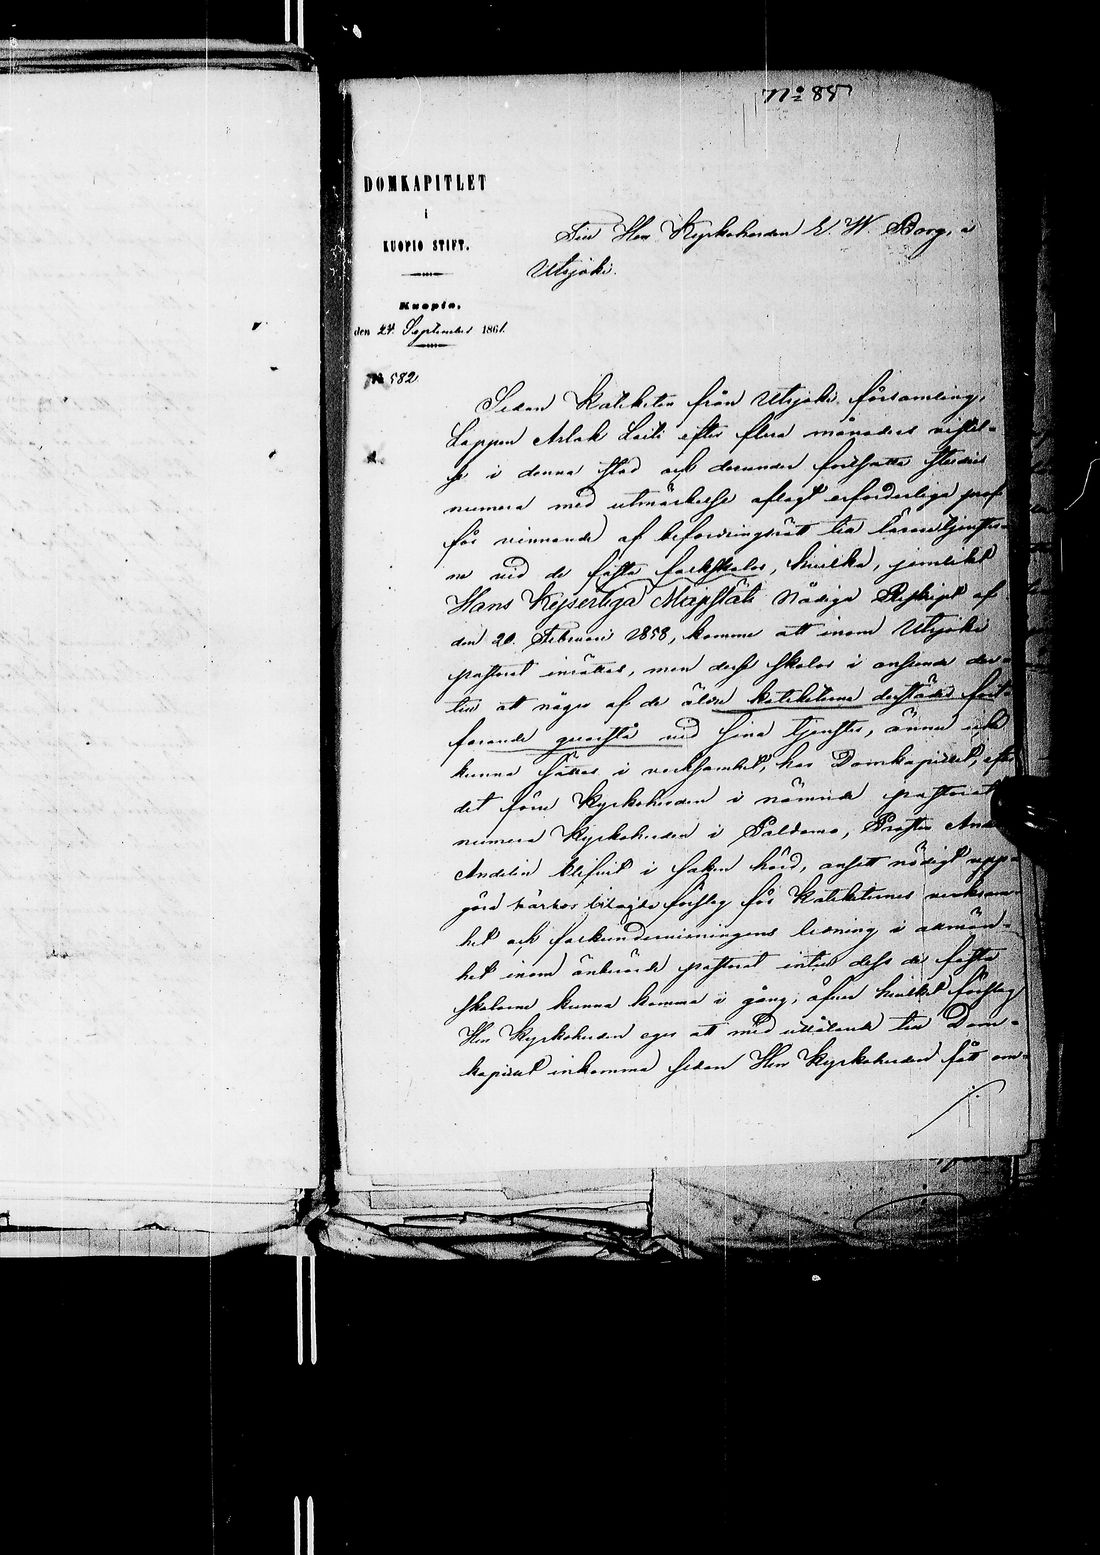 No 85
DOMKAPITLET
i
KUOPIO STIFT.
Kuopio,
den 24 September 1861.
No 582
Till Herr Kyrkoherden E. W. Borg, i
Utsjoki.
Sedan Kateketen från Utsjoki församling,
Lappen Aslak Laiti efter flera månaders vistel-
se i denna stad och derunder fortsatta studier
numera med utmärkelse aflagt erforderliga prof
för vinnande af befordringsrätt till läraretjenster-
na vid de fasta folkskolor, hvilka, jemlikt
Hans Kejserliga Majestäts Nådiga Reskript af
den 20 Februari 1858, komma att inom Utsjoki
pastorat inrättas, men dessa skolor i anseende der-
till att någre af de äldre kateketerna derstädes fort-
farande qvarstå vid sina tjenster, ännu icke
kunna sättas i verksamhet, har Domkapitlet, efter
det förre Kyrkoherden i nämnde pastorat
numera Kyrkoherden i Paldamo, Prosten And
Andelin blifvit i saken hörd, ansett nödigt uppa
göra härhos bilagda förslag för Katiketernes verksam-
het och folkundervisningens ledning i allmän-
het inom änberörde pastorat intill dess de fasta
skolorne kunna komma i gång; öfver hvilket förslag
Herr Kyrkoherden eger att med utlåtande till Dom-
kapitlet inkomma sedan Herr Kyrkoherden fått om-